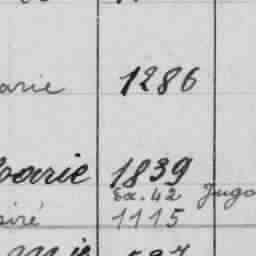 arie 1286
parie 1839
Ex. 42 Jugo
siré 1115